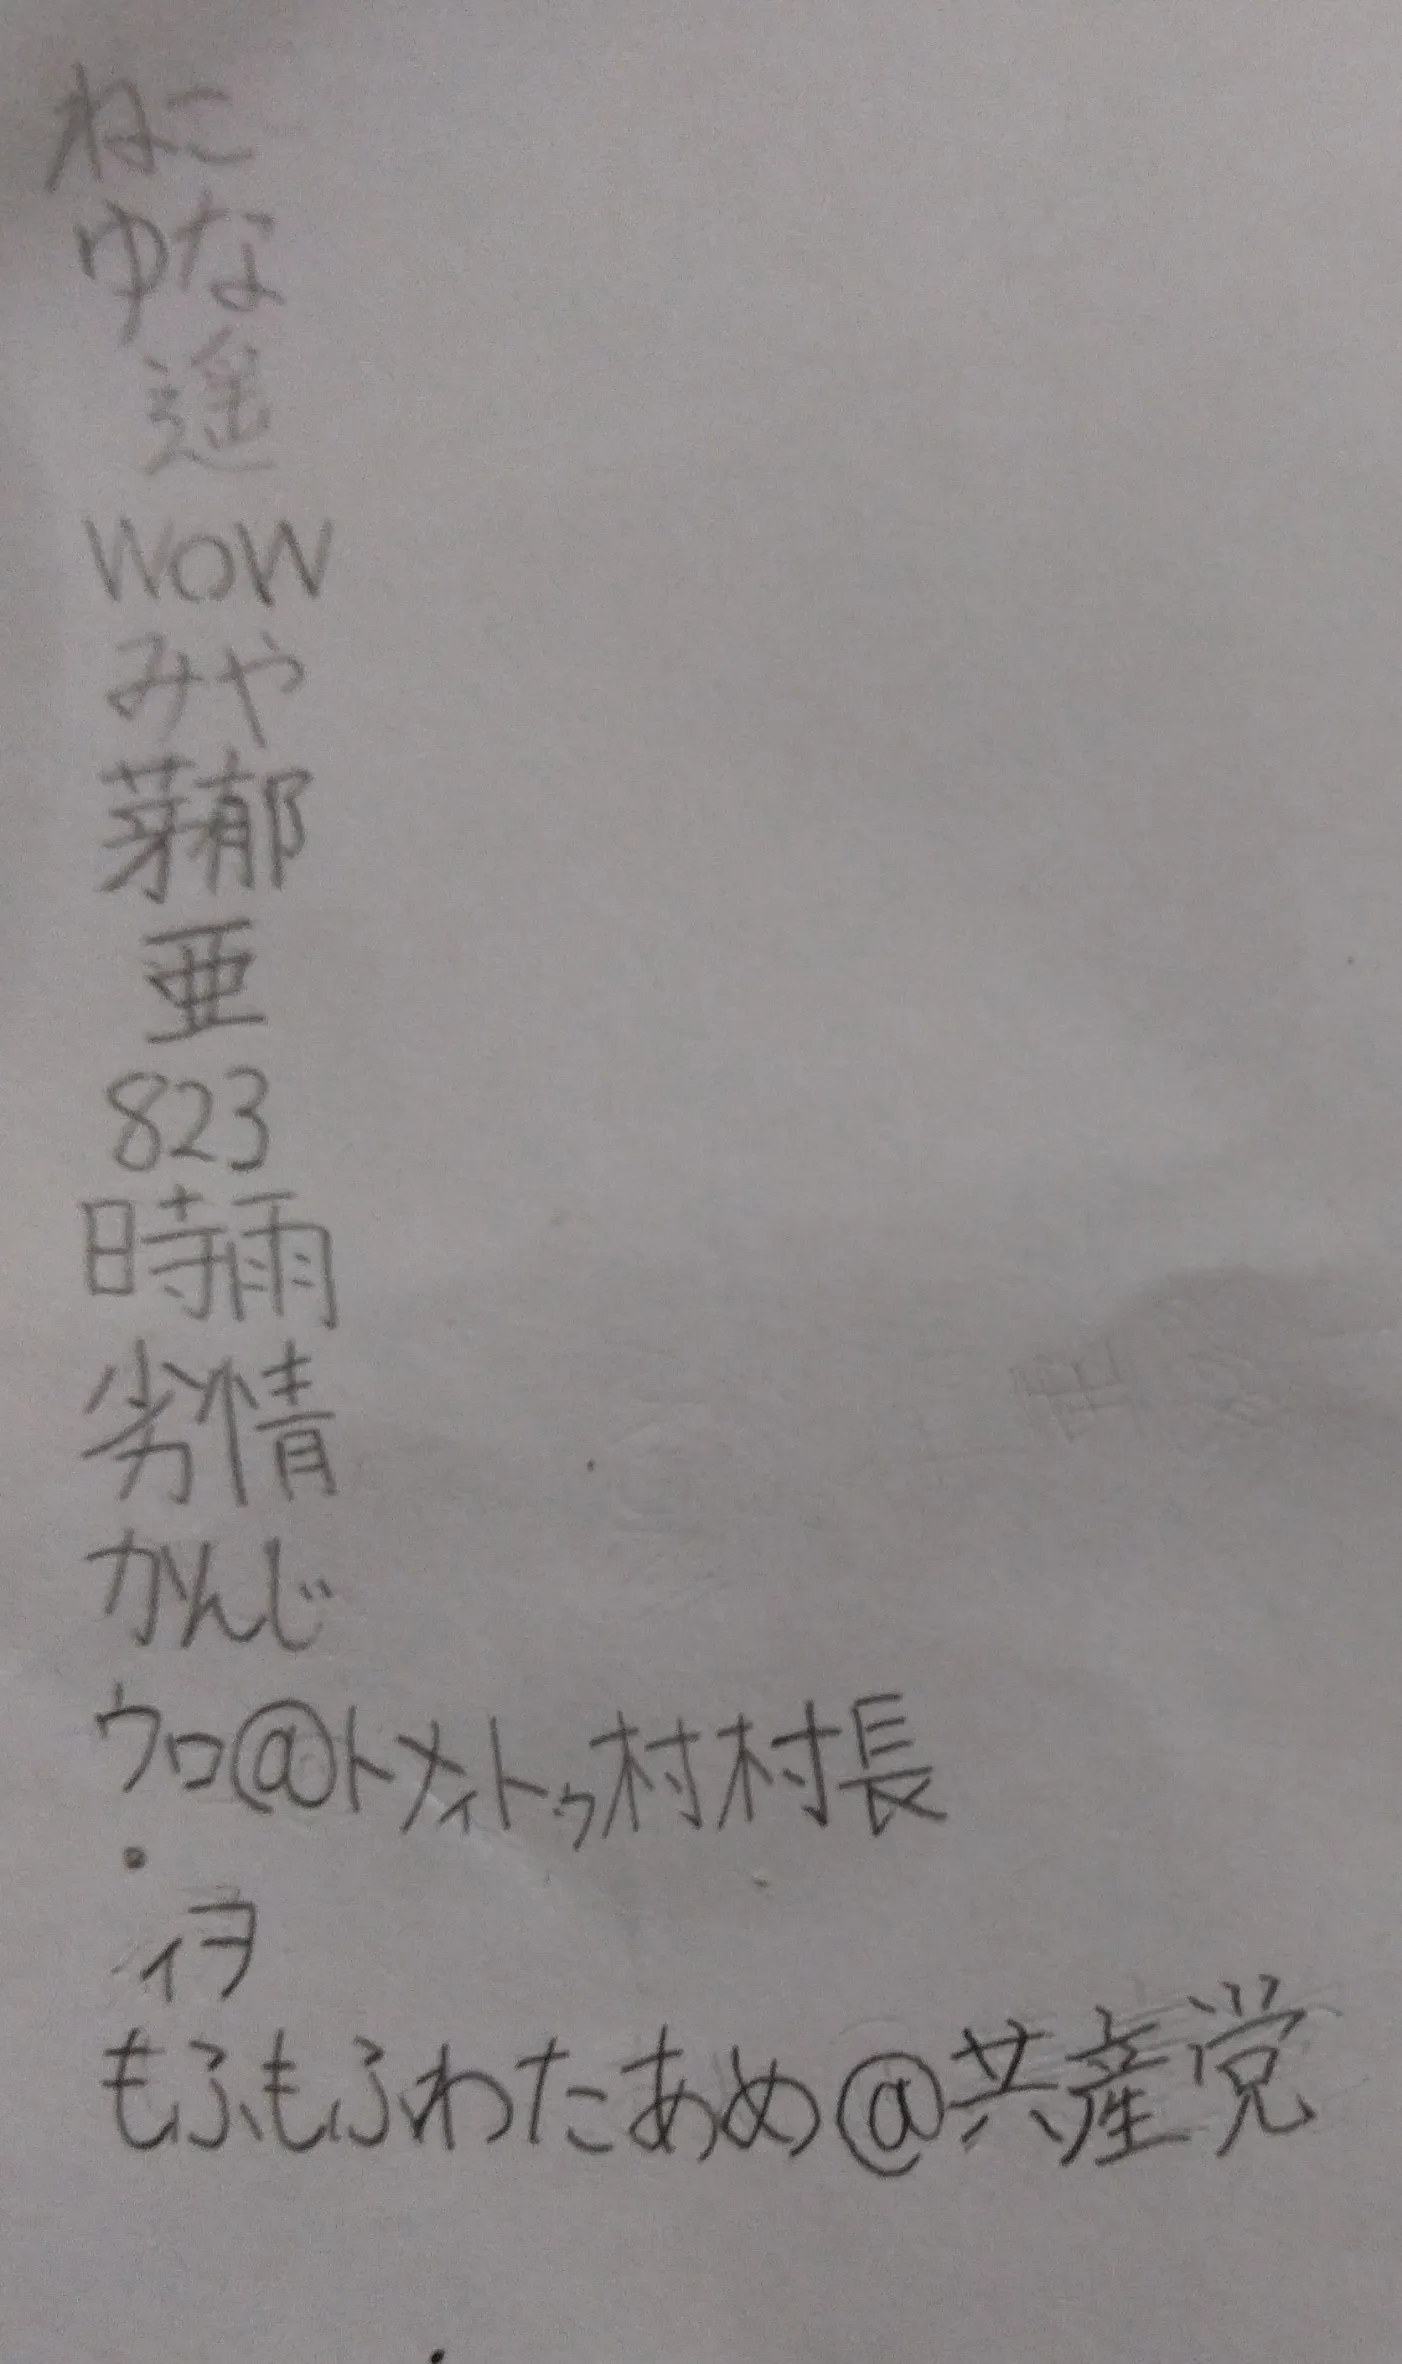 ねこ
ゆな
遥
WOW
みや
芽郁
亜
823
時雨
劣情
かんじ
ウロ@トメィトゥ村村長
・
ィヲ
もふもふわたあめ@共産党